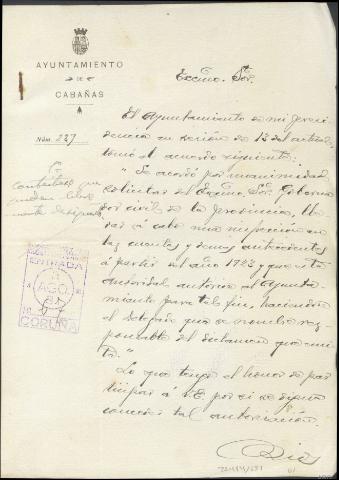 AYUNTAMIENTO
DE
CABAÑAS
Núm. 227
Excmo. Sor.
El Ayuntamiento de mi presi
dencia en sesión de 12 del actual
tomó el acuerdo siguiente:
"Se acordó por unanimidad
solicitar del Excmo. Sor. Goberna
dor civil de la provincia, lle
var á cabo una inspección en
las cuentas y demas antecedentes
á partir del año 1923 y que
autoridad autorice al Ayunta-
miento para tal fin, haciendo
el delegado que se nombre res-
ponsable del dictamen que emi
ta."
Lo que tengo el honor de par
ticipar á V.E. por si se digna
conceder tal autorización.
Dios
ENTRADA
AGO
CORUÑA